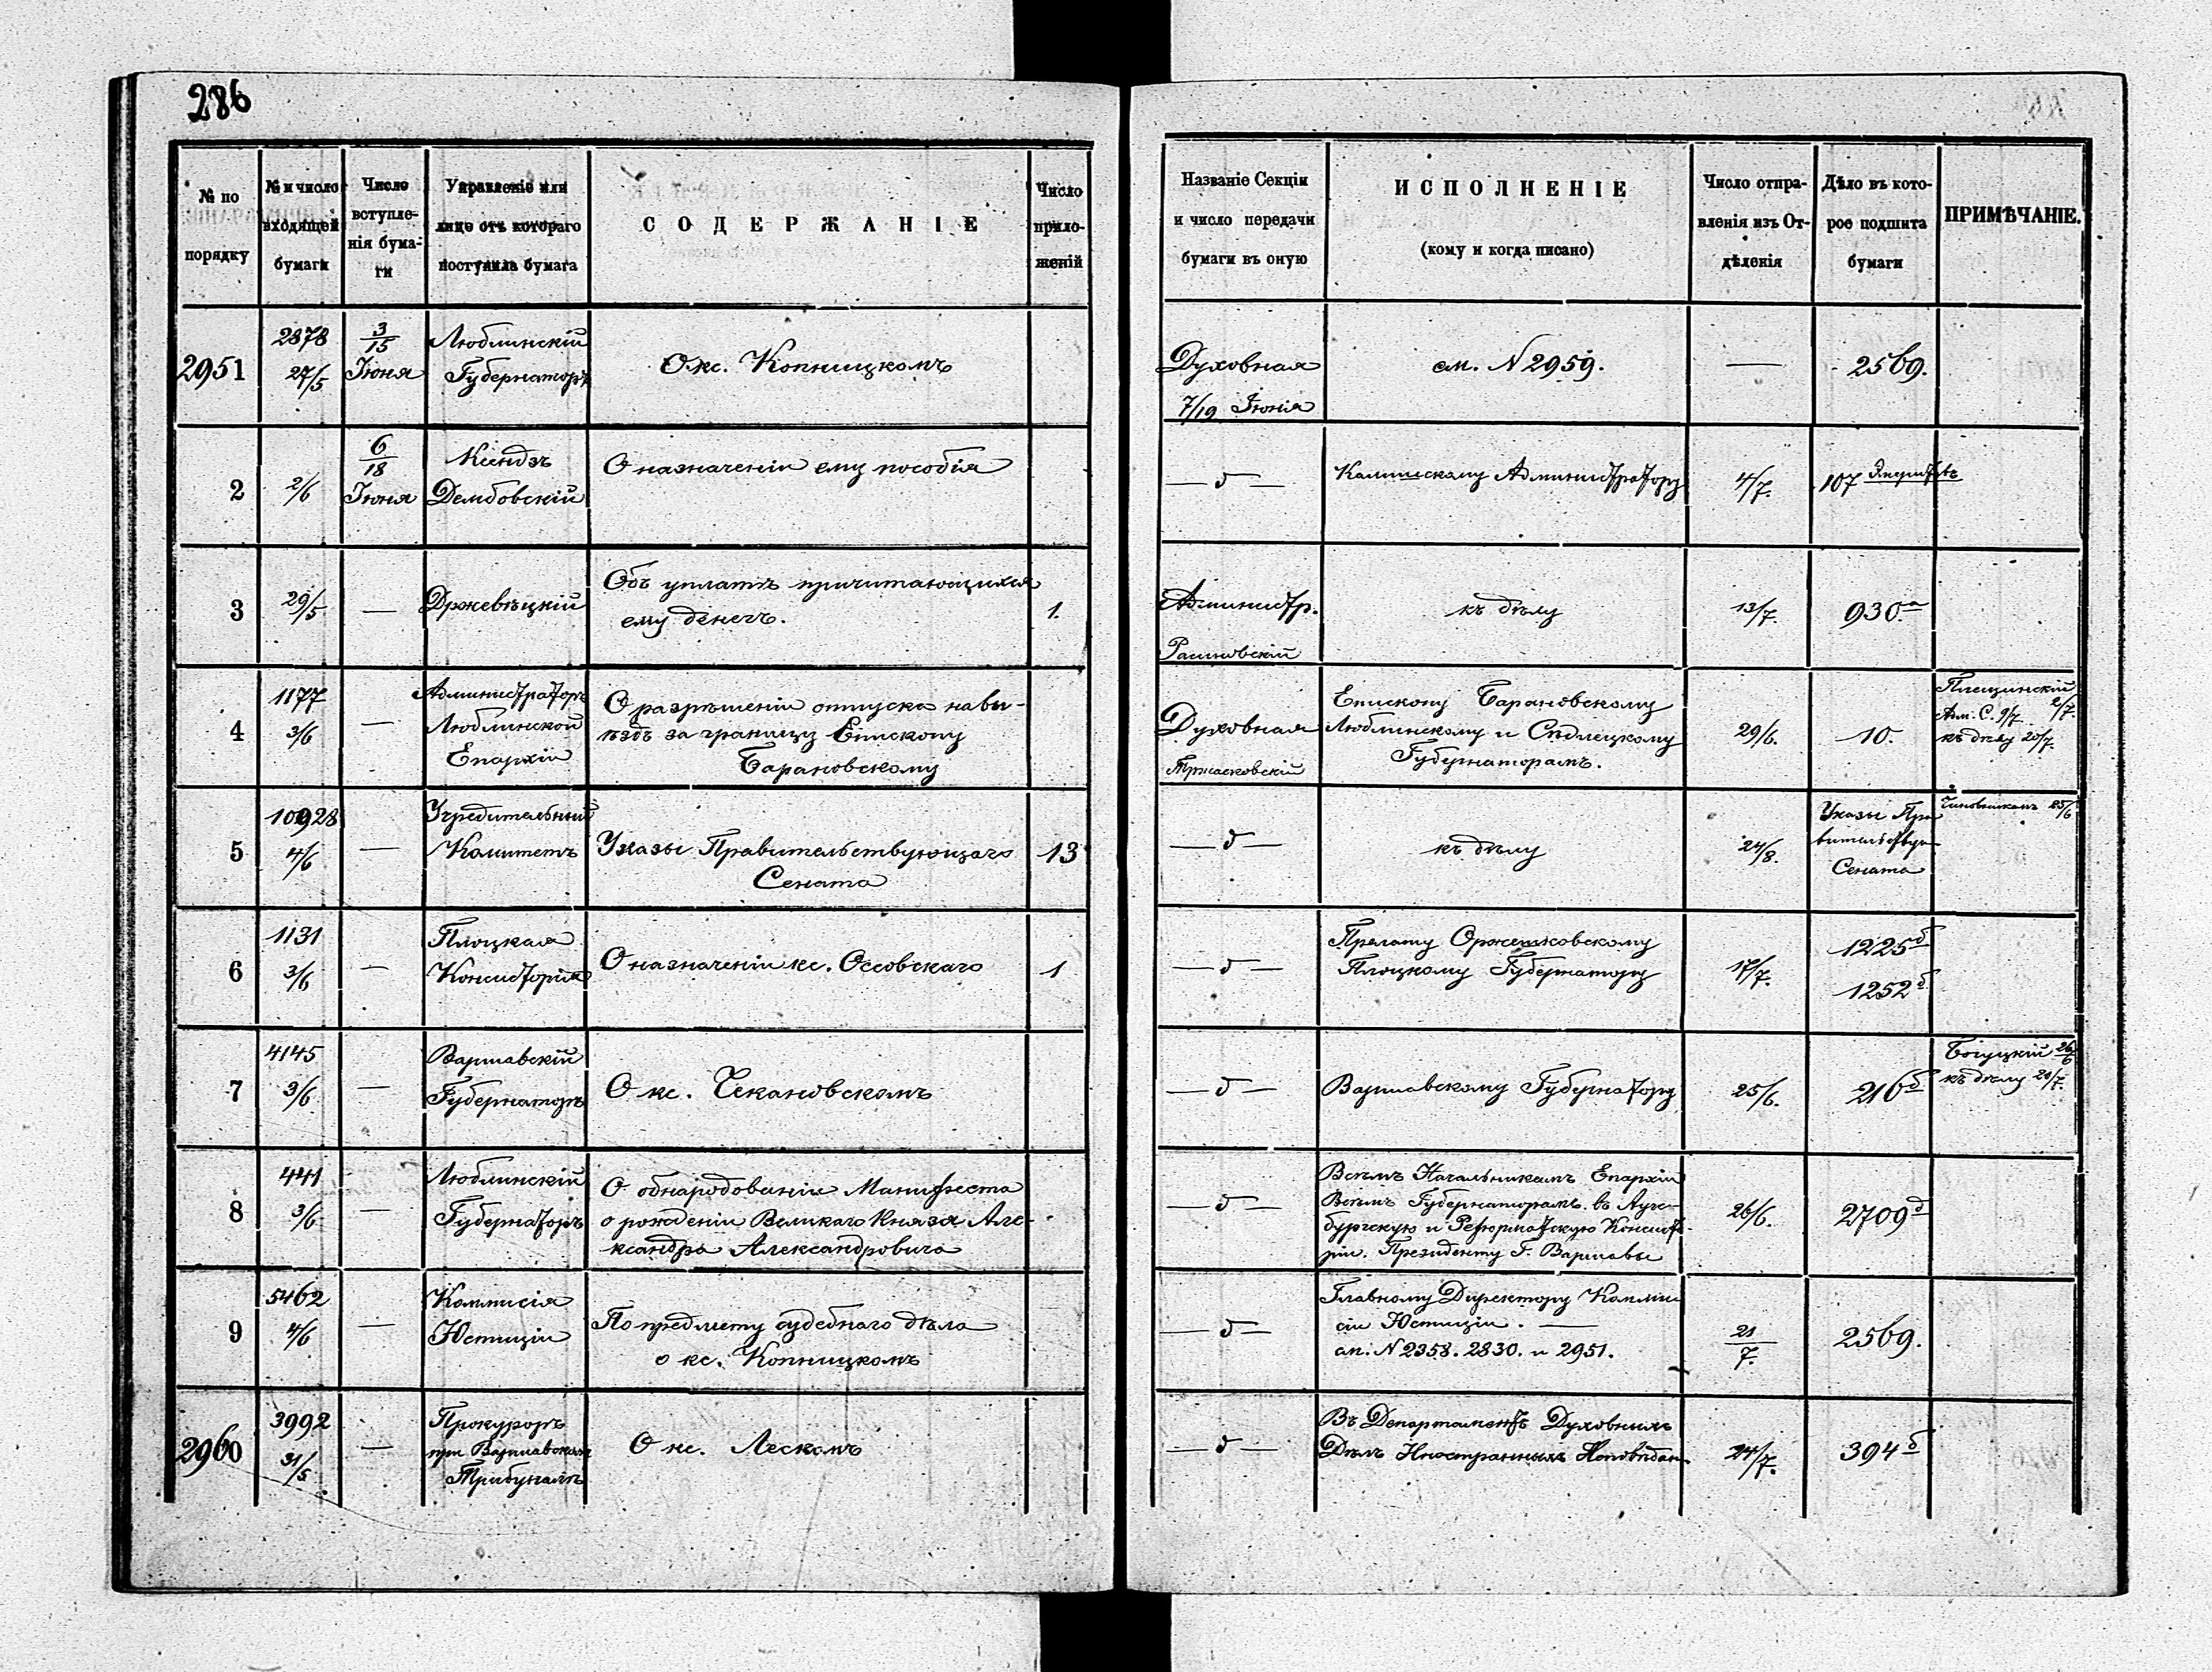 286
№ по порядку
№ и число входящей бумаги
Число вступле-нія бума-ги
Управленіе или лице отъ котораго поступила бумага
СОДЕРЖАНІЕ
Число прило-женій
Названіе Секціи и число передачи бумаги въ оную
ИСПОЛНЕНІЕ
(кому и когда писано)
Число отпра-вленія изъ От-дѣленія
Дѣло въ кото-рое подшита бумаги
ПРИМѢЧАНІЕ.
2951
2878
27/5
3/15
Іюня
Люблинскій
Губернаторъ
О кс. Копницкомъ
Духовная
7/19 Іюнія
см. N 2959.
—
2569.
2
2/6
6/18
Іюня
Ксендзъ
Дембовскій
О назначеніи ему пособія
— д —
Калишскому Администратору
4/7.
107
3
29/5
—
Држевѣцкій
Объ уплатѣ причитающихся
ему денегъ.
1.
Администр.
къ дѣлу
13/7.
930.а
4
1177
3/6
—
Администраторъ
Люблинской
Епархіи
О разрѣшеніи отпуска на вы-
ѣздъ за границу Епископу
Барановскому
Духовная
Тржасковскій
Епископу Барановскому
Люблинскому и Сѣдлецкому
Губернаторамъ.
29/6.
10.
Плещинскій
2/7.
Адм. С. 9/7
къ дѣлу 20/7.
5
10928
4/6
—
Учредительный
Комитетъ
Указы Правительствующаго
Сената
13
— д —
къ дѣлу
24/8.
Указы Пра
вительствую
Сената
Чиновникамъ 25/6
6
1131
3/6
—
Плоцкая
Консисторія
О назначеніи кс. Оссовскаго
1
— д —
Прелату Оржешковскому
Плоцкому Губернатору
17/7.
1225 б
1252 б
7
4145
3/6
—
Варшавскій
Губернаторъ
О кс. Чекановскомъ
— д —
Варшавскому Губернатору
25/6.
216 б
Богуцкій 26/6
къ дѣлу 20/7.
8
441
3/6
—
Люблинскій
Губернаторъ
О обнародованіи Манифеста
о рожденіи Великаго Князя Але-
ксандра Александровича
— д —
Всѣмъ Начальникамъ Епархій
Всѣмъ Губернаторамъ. въ Ауге-
бургскую и Реформатскую Консисто-
ріи. Президенту Г. Варшавы
26/6.
2709 д
9
5462
4/6
—
Коммисія
Юстиціи
По предмету судебнаго дѣла
о кс. Копницкомъ
— д —
Главному Директору Комми
сіи Юстиціи. —
ап. N 2358. 2830. и 2951.
21/7.
2569.
2960
3992
31/5
—
Прокуроръ
при Варшавском
Трибуналѣ
О кс. Лескомъ
— д —
Въ Департаментъ Духовныхъ
Дѣлъ Иностранныхъ Исповѣдан.
24/7.
394 б